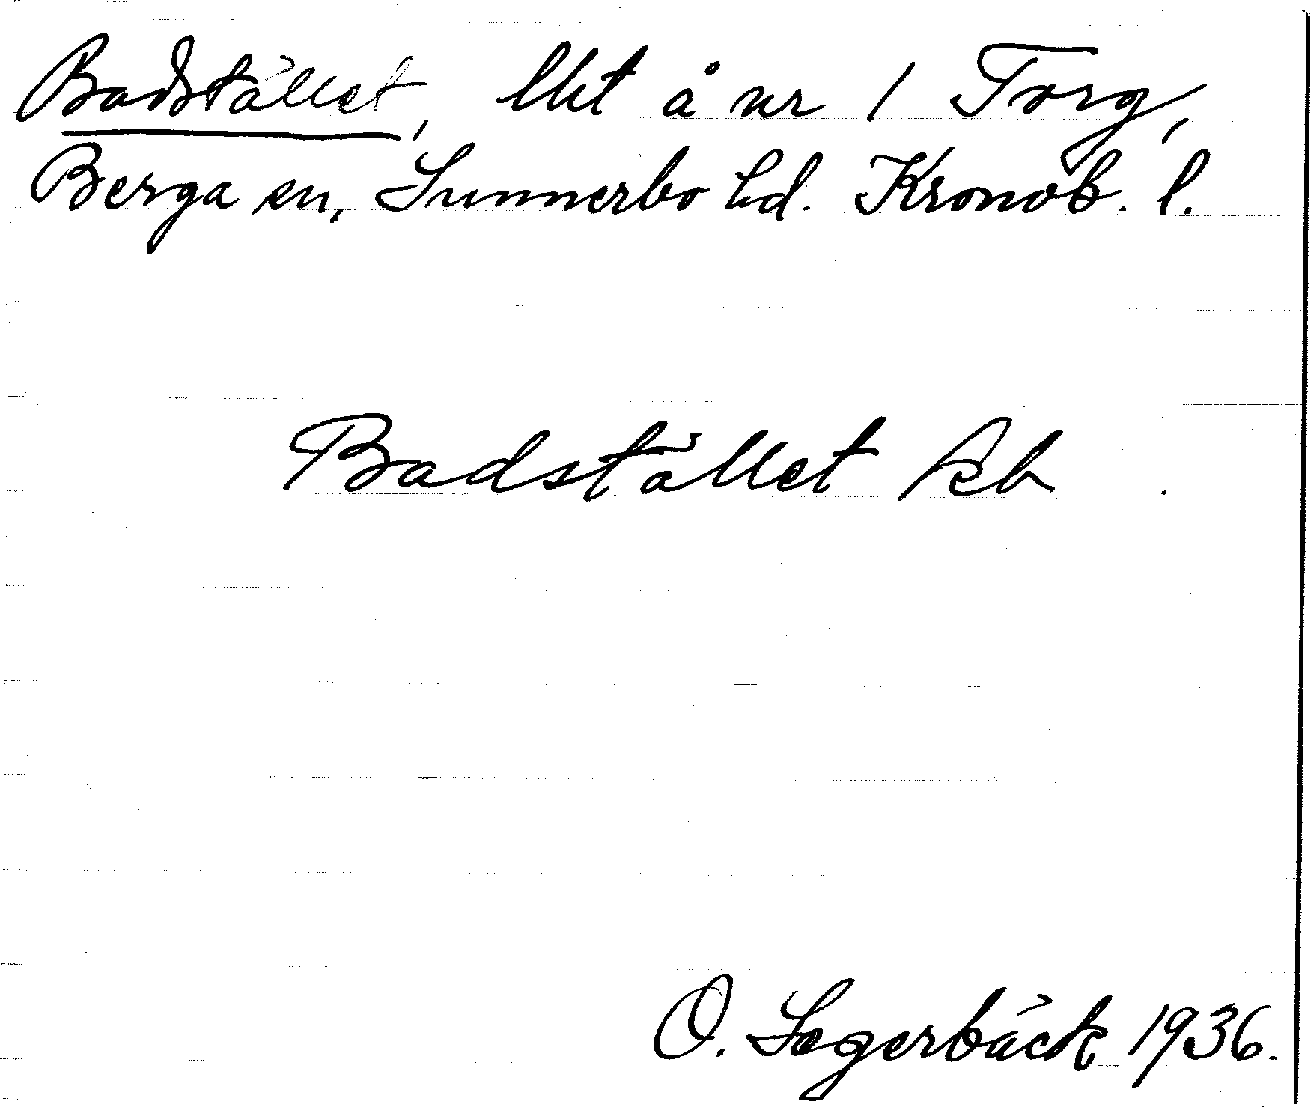 Badstället, lht å nr 1 Torg,
Berga sn, Sunnerbo hd. Kronob. l.
Badstället Ekb
O. Sagerbäck 1936.